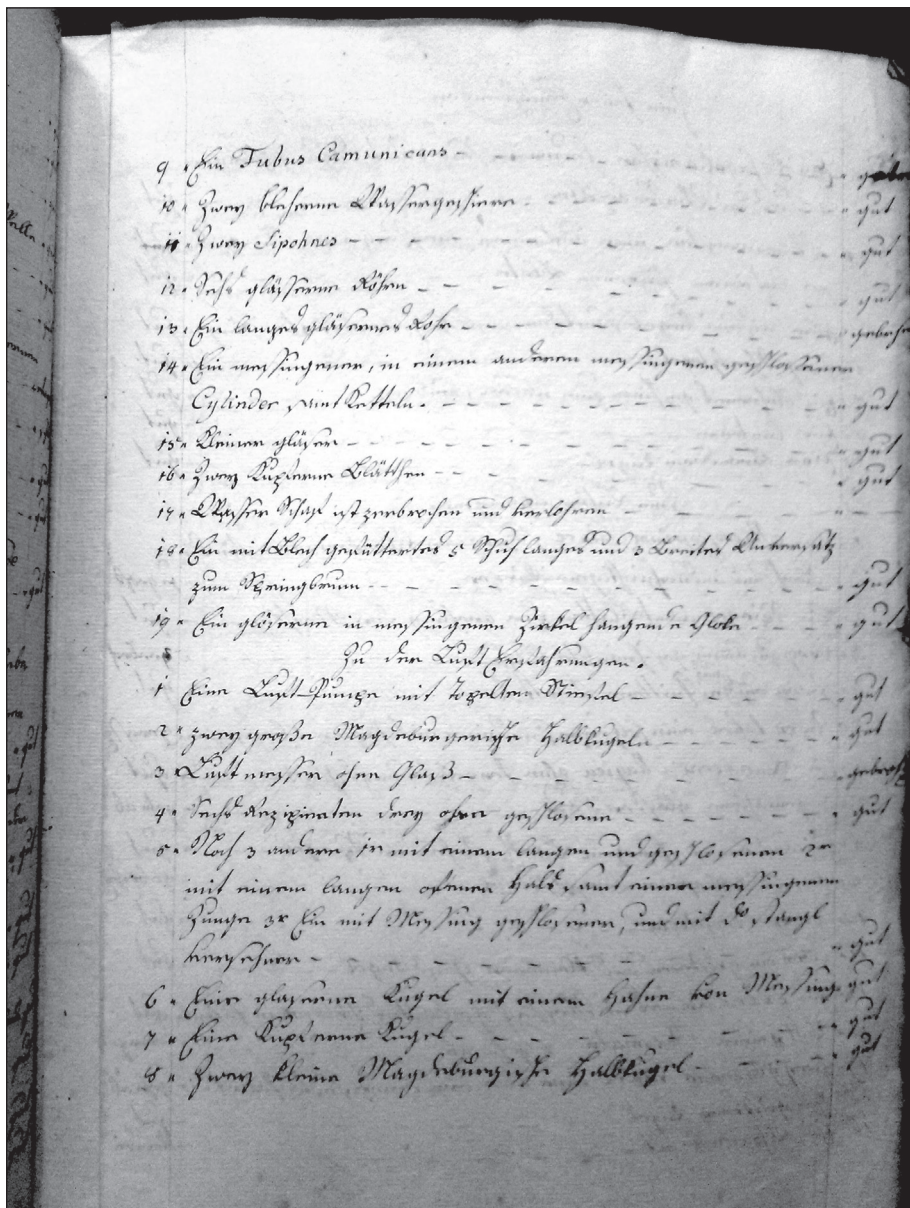 9 " Ein Tubus Camunicans - "
10 " Zwey bleherne Wassergeschiere - " gut
11 " Zwey Sipohnes - " gut
12 " Sechs glässerne Röhrn - " gut
13 " Ein langes gläsernes Rohr - "
14 " Ein messingener, in einem anderen messingenen geschlossener
Cylinder samt Ketteln. - " gut
15 " Kleiner gläser - " gut
16 " Zwey Kupferne Blättchen - " gut
17 " Wasser Schaf ist zerbrochen und verlohren - "
18 " Ein mit Blech gefüttertes 5 Schuh langes und 3 Breites Untersatz
zum Springbrunn - " gut
19 " Ein gläserne in messingenen Zirkel hangende Globe - " gut
Zu der Luft Erfahrungen.
1 Eine Luft-Pumpe mit topelten Stiefel - " gut
2 " zwey große Magdeburgerische Halbkugeln - " gut
3 " Luftmesser ohne Glaß - "
4 " Sechs Rezipienten drey ober geschlosene - " gut
5 " Noch 3 andere 1r mit einem langen und geschlosenen 2r
mit einem langen ofenen Hals samt einer messingenen
3r Ein mit Messing geschlosener, und mit do stangl
versehner - " gut
6 " Eine glaserne Kugel mit einem Hahne von Messing " gut
7 " Eine Kupferne Kugel - " gut
8 " Zwey kleine Magdeburgische Halbkugel - " gut